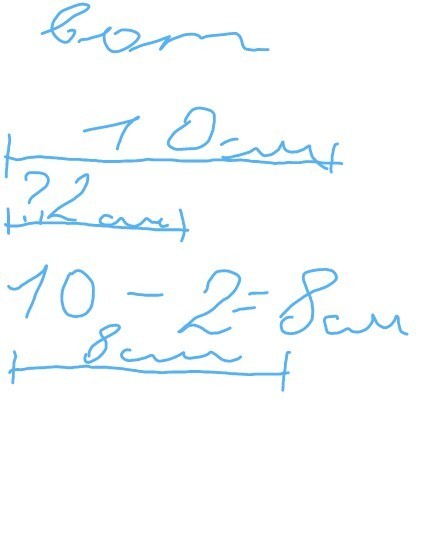 вот
10 см
?.2 см
10 - 2 = 8 см
8 см